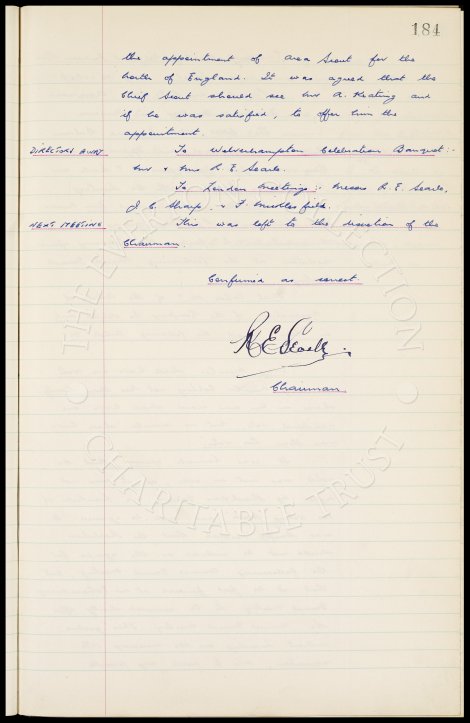 184
the appointment of area Scout for the
North of England. It was agreed that the
Chief Scout should see Mr A. Keating and
if he was satisfied, to offer him the
appointment.
DIRECTORS AWAY To Wolverhampton Celebration Banquet:-
Mr & Mrs R. E. Searle.
To London Meetings:- Messrs R. E. Searle,
J. C. Sharp & F. Micklesfield.
NEXT MEETING This was left to the discretion of the
Chairman.
Confirmed as correct.
R E Searle
Chairman.
THE EVERTON COLLECTION
CHARITABLE TRUST